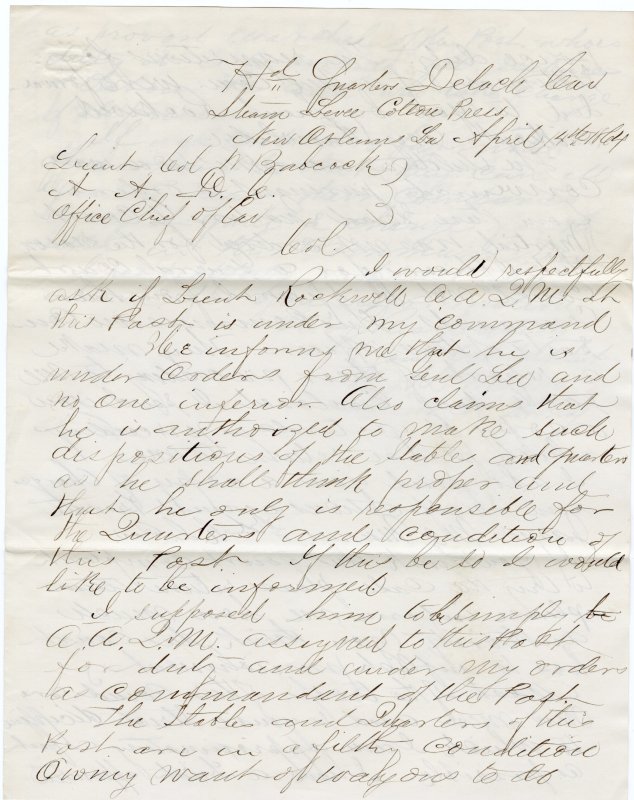 Hd Quarters Detach Cav
Steam Levee Cotton Press,
New Orleans La April 4th 1864
Lieut Col N Babcock
A. A. D. C.
Office Chief of Cav
Col.
I would respectfully
ask if Lieut Rockwell A A Q M at
this Post is under my command
He informs me that he is
under Orders from Genl Lee and
no One inferior. Also claims that
he is authorized to make such
dispositions of the Stables and Quarters
as he shall think proper and
that he only is responsible for
the Quarters and condition of
this Post If this be so I would
like to be informed
I supposed him to be simply
A. A. Q. M. assigned to this Post
for duty and under my orders
as commandant of the Post
The Stables and Quarters of this
Post are in a filthy condition
Owing want of wagons to do